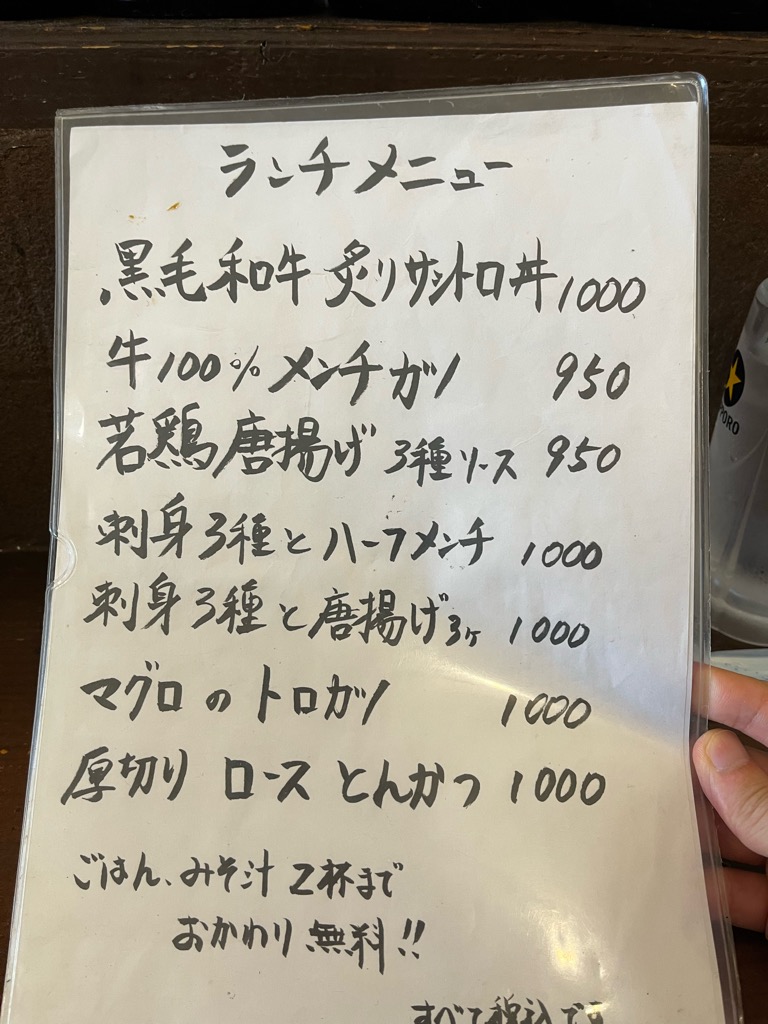 ランチメニュー
黒毛和牛 炙りサシトロ丼 1000
牛100% メンチカツ 950
若鶏唐揚げ 3種ソース 950
刺身3種とハーフメンチ 1000
刺身3種と唐揚げ3ヶ 1000
マグロのトロカツ 1000
厚切り ロース とんかつ 1000
ごはん、みそ汁 2杯まで
おかわり 無料!!
すべて税込です
PORO